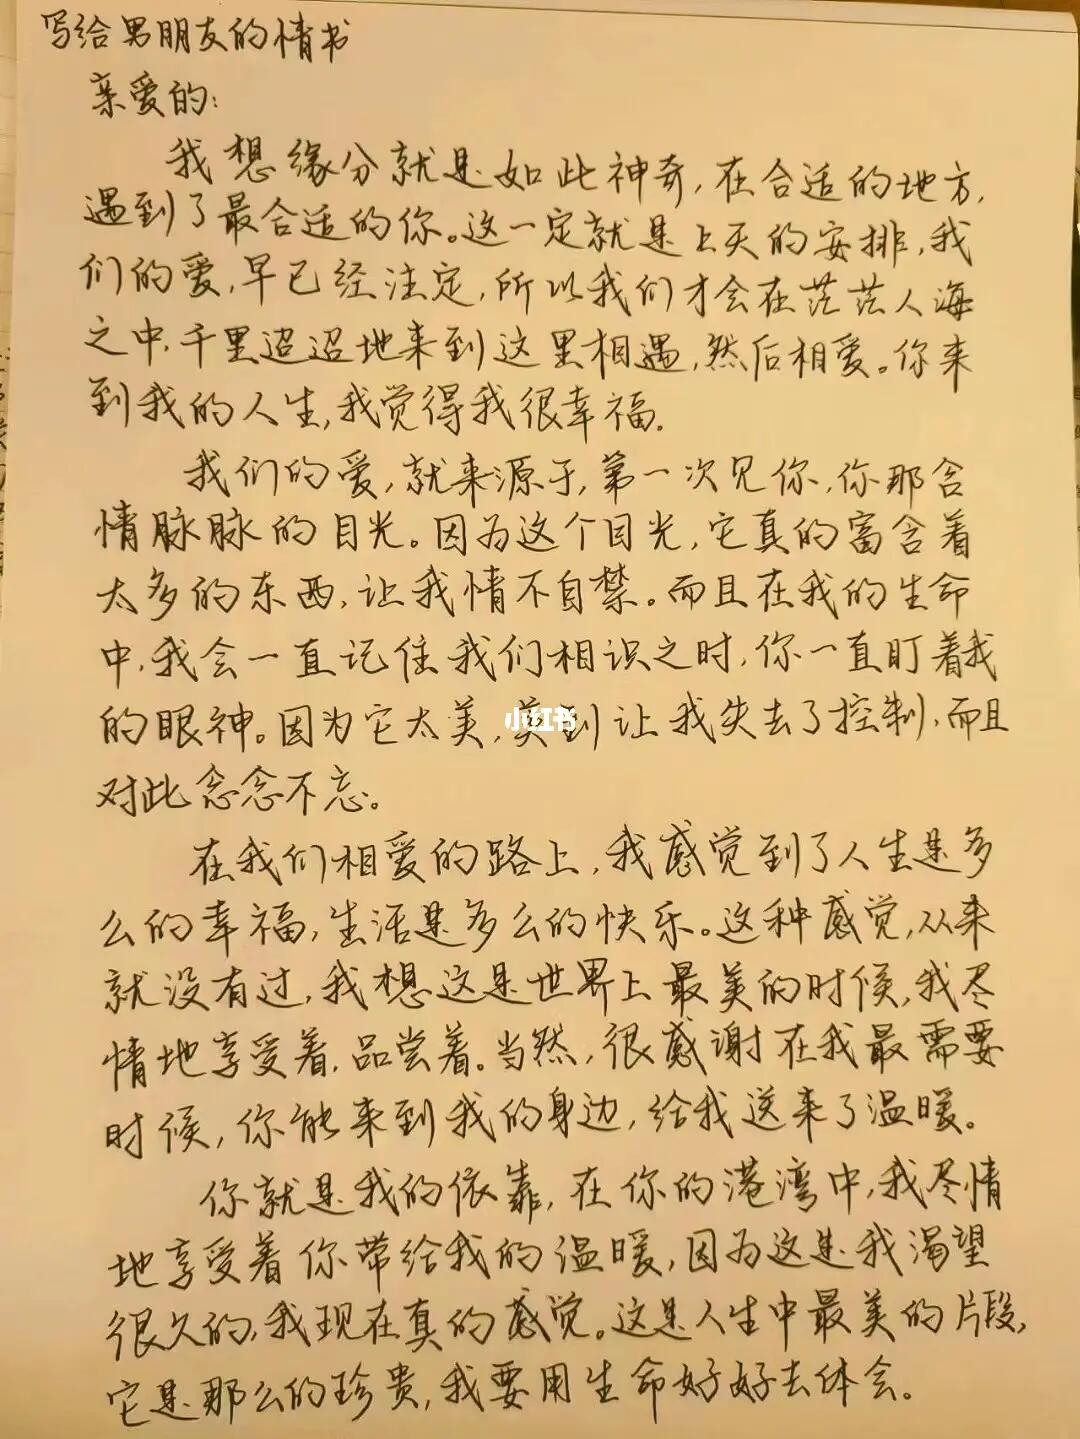 写给男朋友的情书
亲爱的:
我想缘分就是如此神奇,在合适的地方,
遇到了最合适的你。这一定就是上天的安排,我
们的爱,早已经注定,所以我们才会在茫茫人海
之中,千里迢迢地来到这里相遇,然后相爱。你来
到我的人生,我觉得我很幸福.
我们的爱,就来源于,第一次见你,你那含
情脉脉的目光。因为这个目光,它真的富含着
太多的东西,让我情不自禁。而且在我的生命
中,我会一直记住我们相识之时,你一直盯着我
的眼神。因为它太美,美到让我失去了控制,而且
小红书
对此念念不忘。
在我们相爱的路上,我感觉到了人生是多
么的幸福,生活是多么的快乐。这种感觉,从来
就没有过,我想这是世界上最美的时候,我尽
情地享受着,品尝着。当然,很感谢在我最需要
时候,你能来到我的身边,给我送来了温暖。
你就是我的依靠,在你的港湾中,我尽情
地享受着你带给我的温暖,因为这是我渴望
很久的,我现在真的感觉。这是人生中最美的片段,
它是那么的珍贵,我要用生命好好去体会。